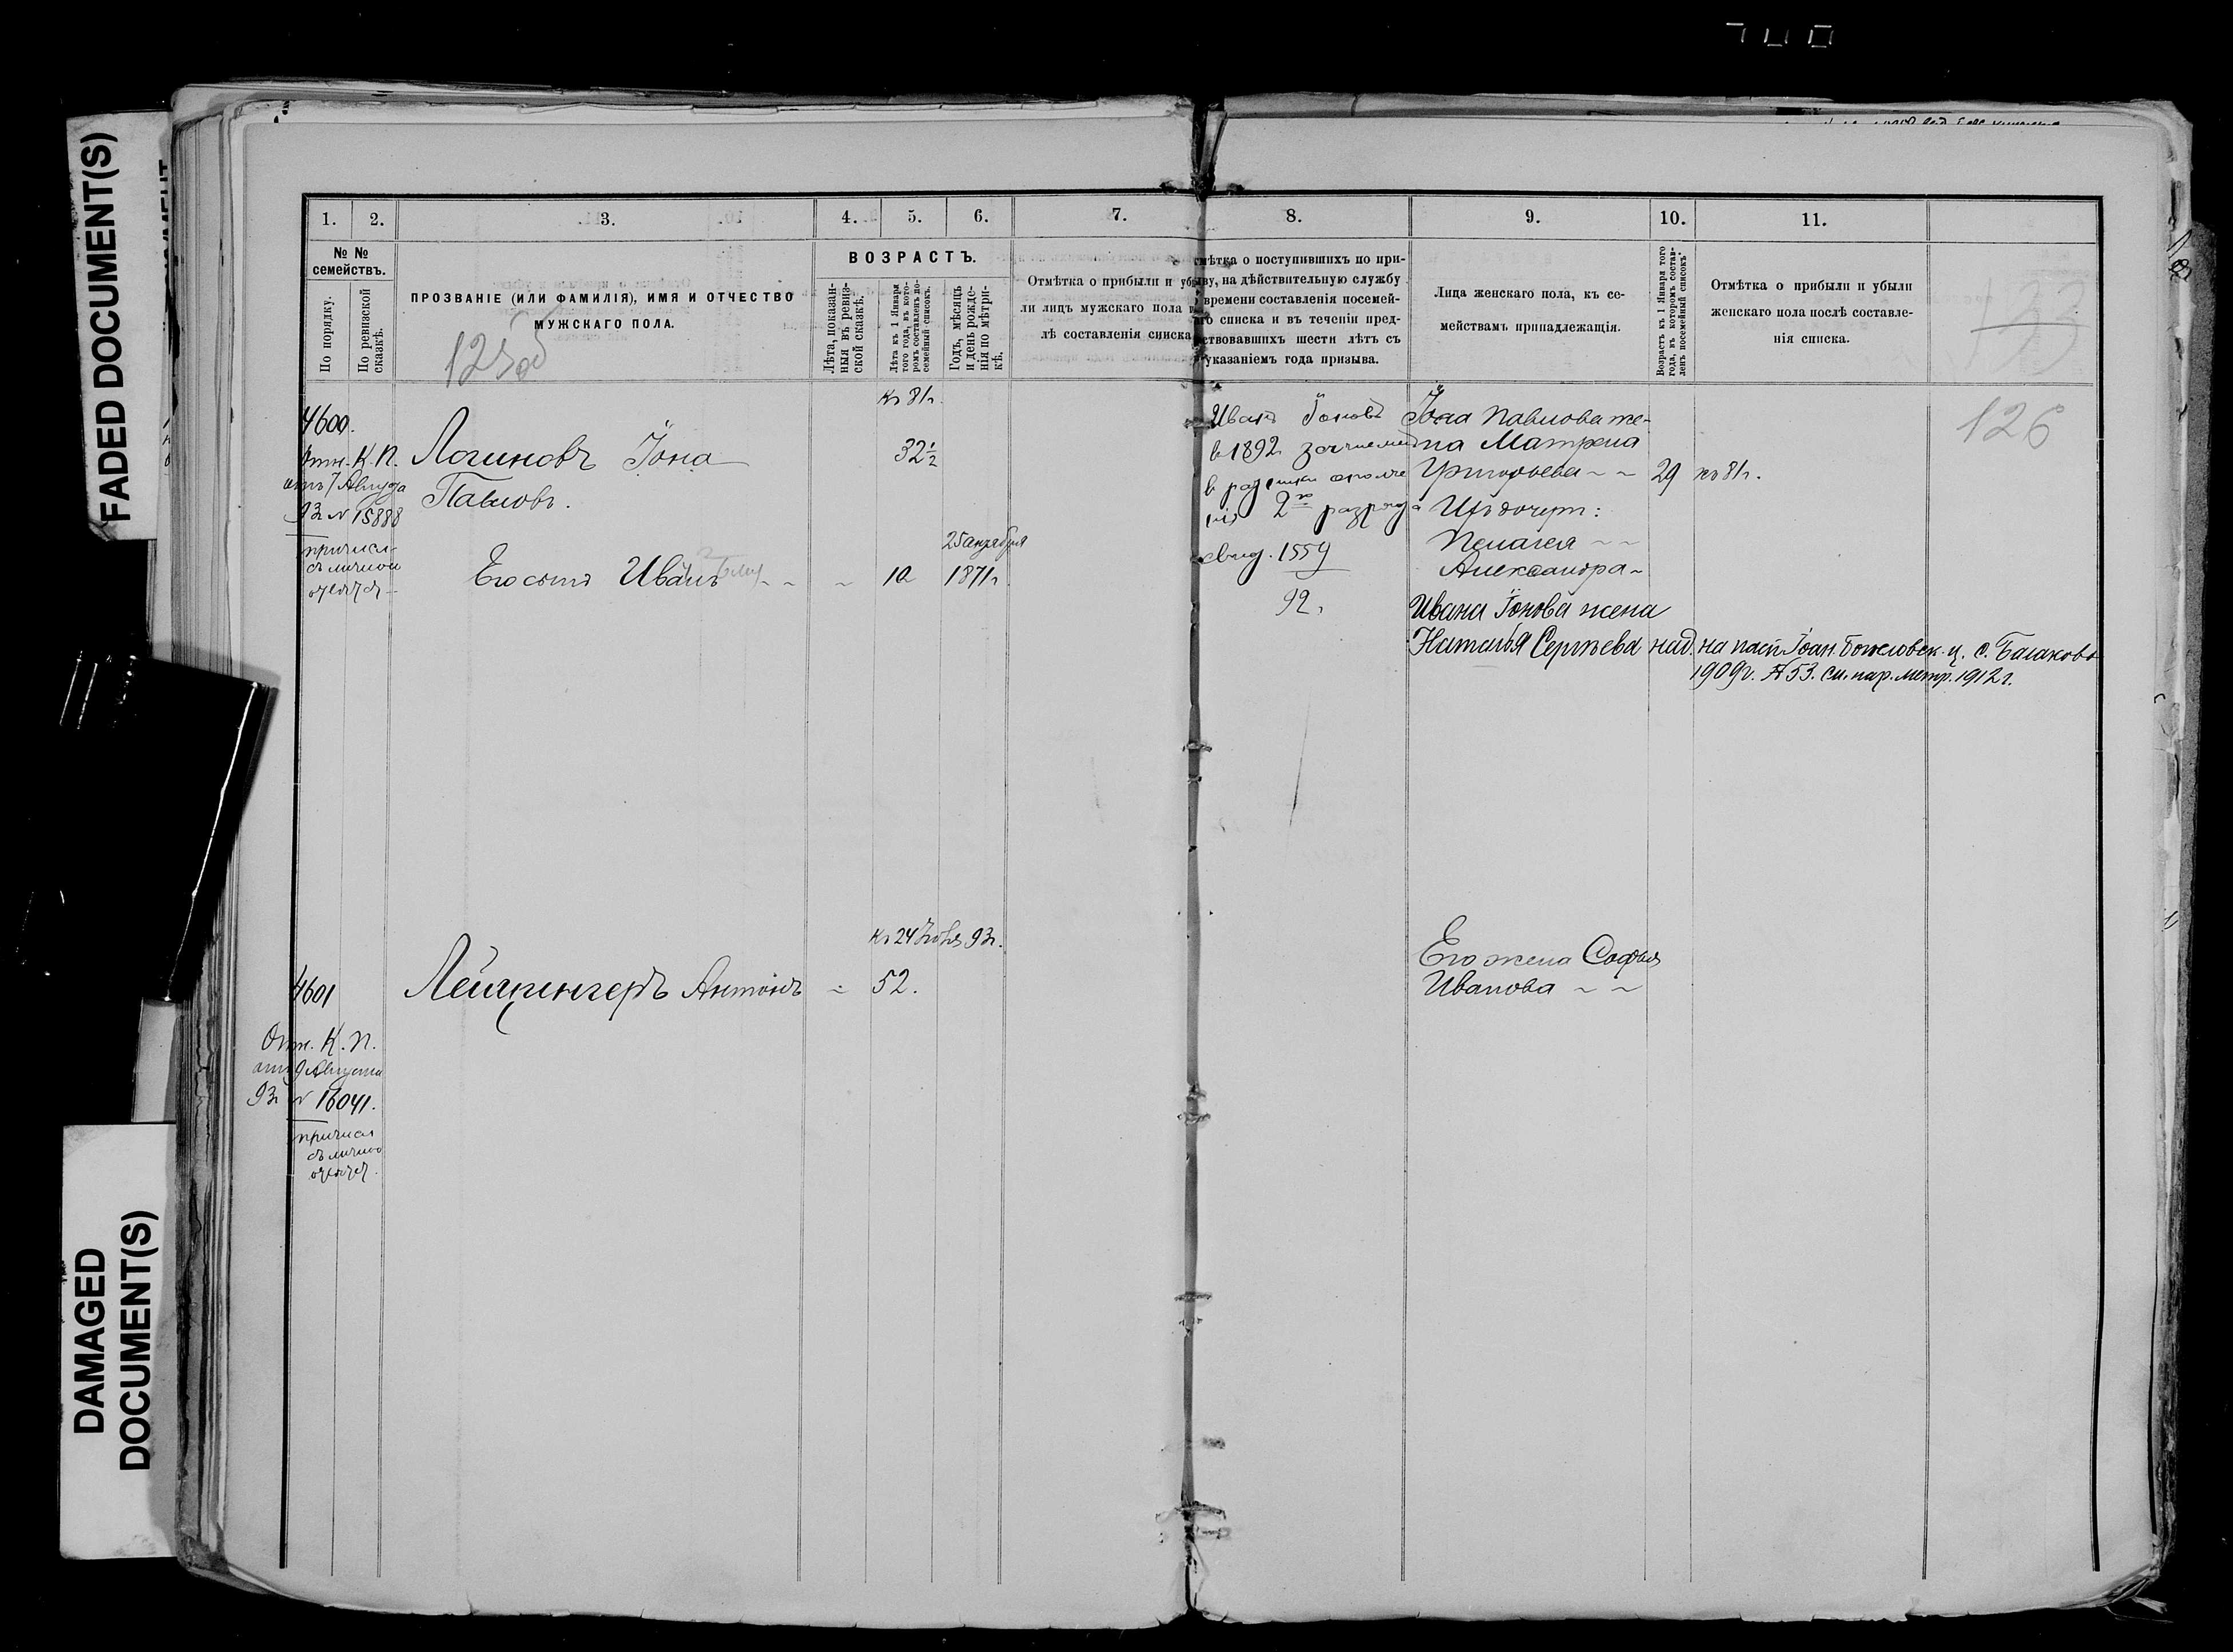 FADED DOCUMENT(S)
DAMAGED
DOCUMENT(S)
1.
2.
3.
4.
5.
6.
7.
8.
9.
10.
11.
№ №
семействъ.
По порядку.
По ревизской
сказкѣ.
ПРОЗВАНІЕ (ИЛИ ФАМИЛІЯ), ИМЯ И ОТЧЕСТВО
МУЖСКАГО ПОЛА.
ВОЗРАСТЪ.
Лѣта, показан-
ныя въ ревиз-
ской сказкѣ.
Лѣта къ 1 Января
того года, въ кото-
ромъ составленъ по-
семейный списокъ.
Годъ, мѣсяцъ
и день рожде-
нія по метри-
кѣ.
Отмѣтка о прибыли и убы
ли лицъ мужскаго пола
лѣ составленія списка
мѣтка о поступившихъ по при-
ву, на дѣйствительную службу
времени составленія посемей-
го списка и въ теченіи пред-
ствовавшихъ шести лѣтъ съ
указаніемъ года призыва.
Лица женскаго пола, къ се-
мействамъ принадлежащія.
Возрастъ къ 1 Января того
года, въ которомъ состав-
ленъ посемейный списокъ
Отмѣтка о прибыли и убыли
женскаго пола послѣ составле-
нія списка.
126
4600.
Отн. К. П.
отъ 7 Августа
93г № 15888
причисл.
съ личной
Къ 81г.
Логиновъ Іона
32½
Павловъ.
Его сынъ Иванъ
10
25 октября
1871г.
Иванъ Іоновъ
в 1892 зачисленъ
в
2го разряда
свид. 1559
92.
Іона Павлова же-
на Матрена
Григорьева 29 къ 81г.
Ихъ дочери:
Пелагея
Александра
Ивана Іонова жена
Наталья Сергѣева
на Іоан. Богословск. ц. с. Балаково
1909г. № 53. см. метр. 1912г.
4601
Отн. К. П.
отъ 9 Августа
93г № 16041.
причисл
съ лично
Къ 24 93г.
Антонъ 52.
Его жена Софья
Иванова